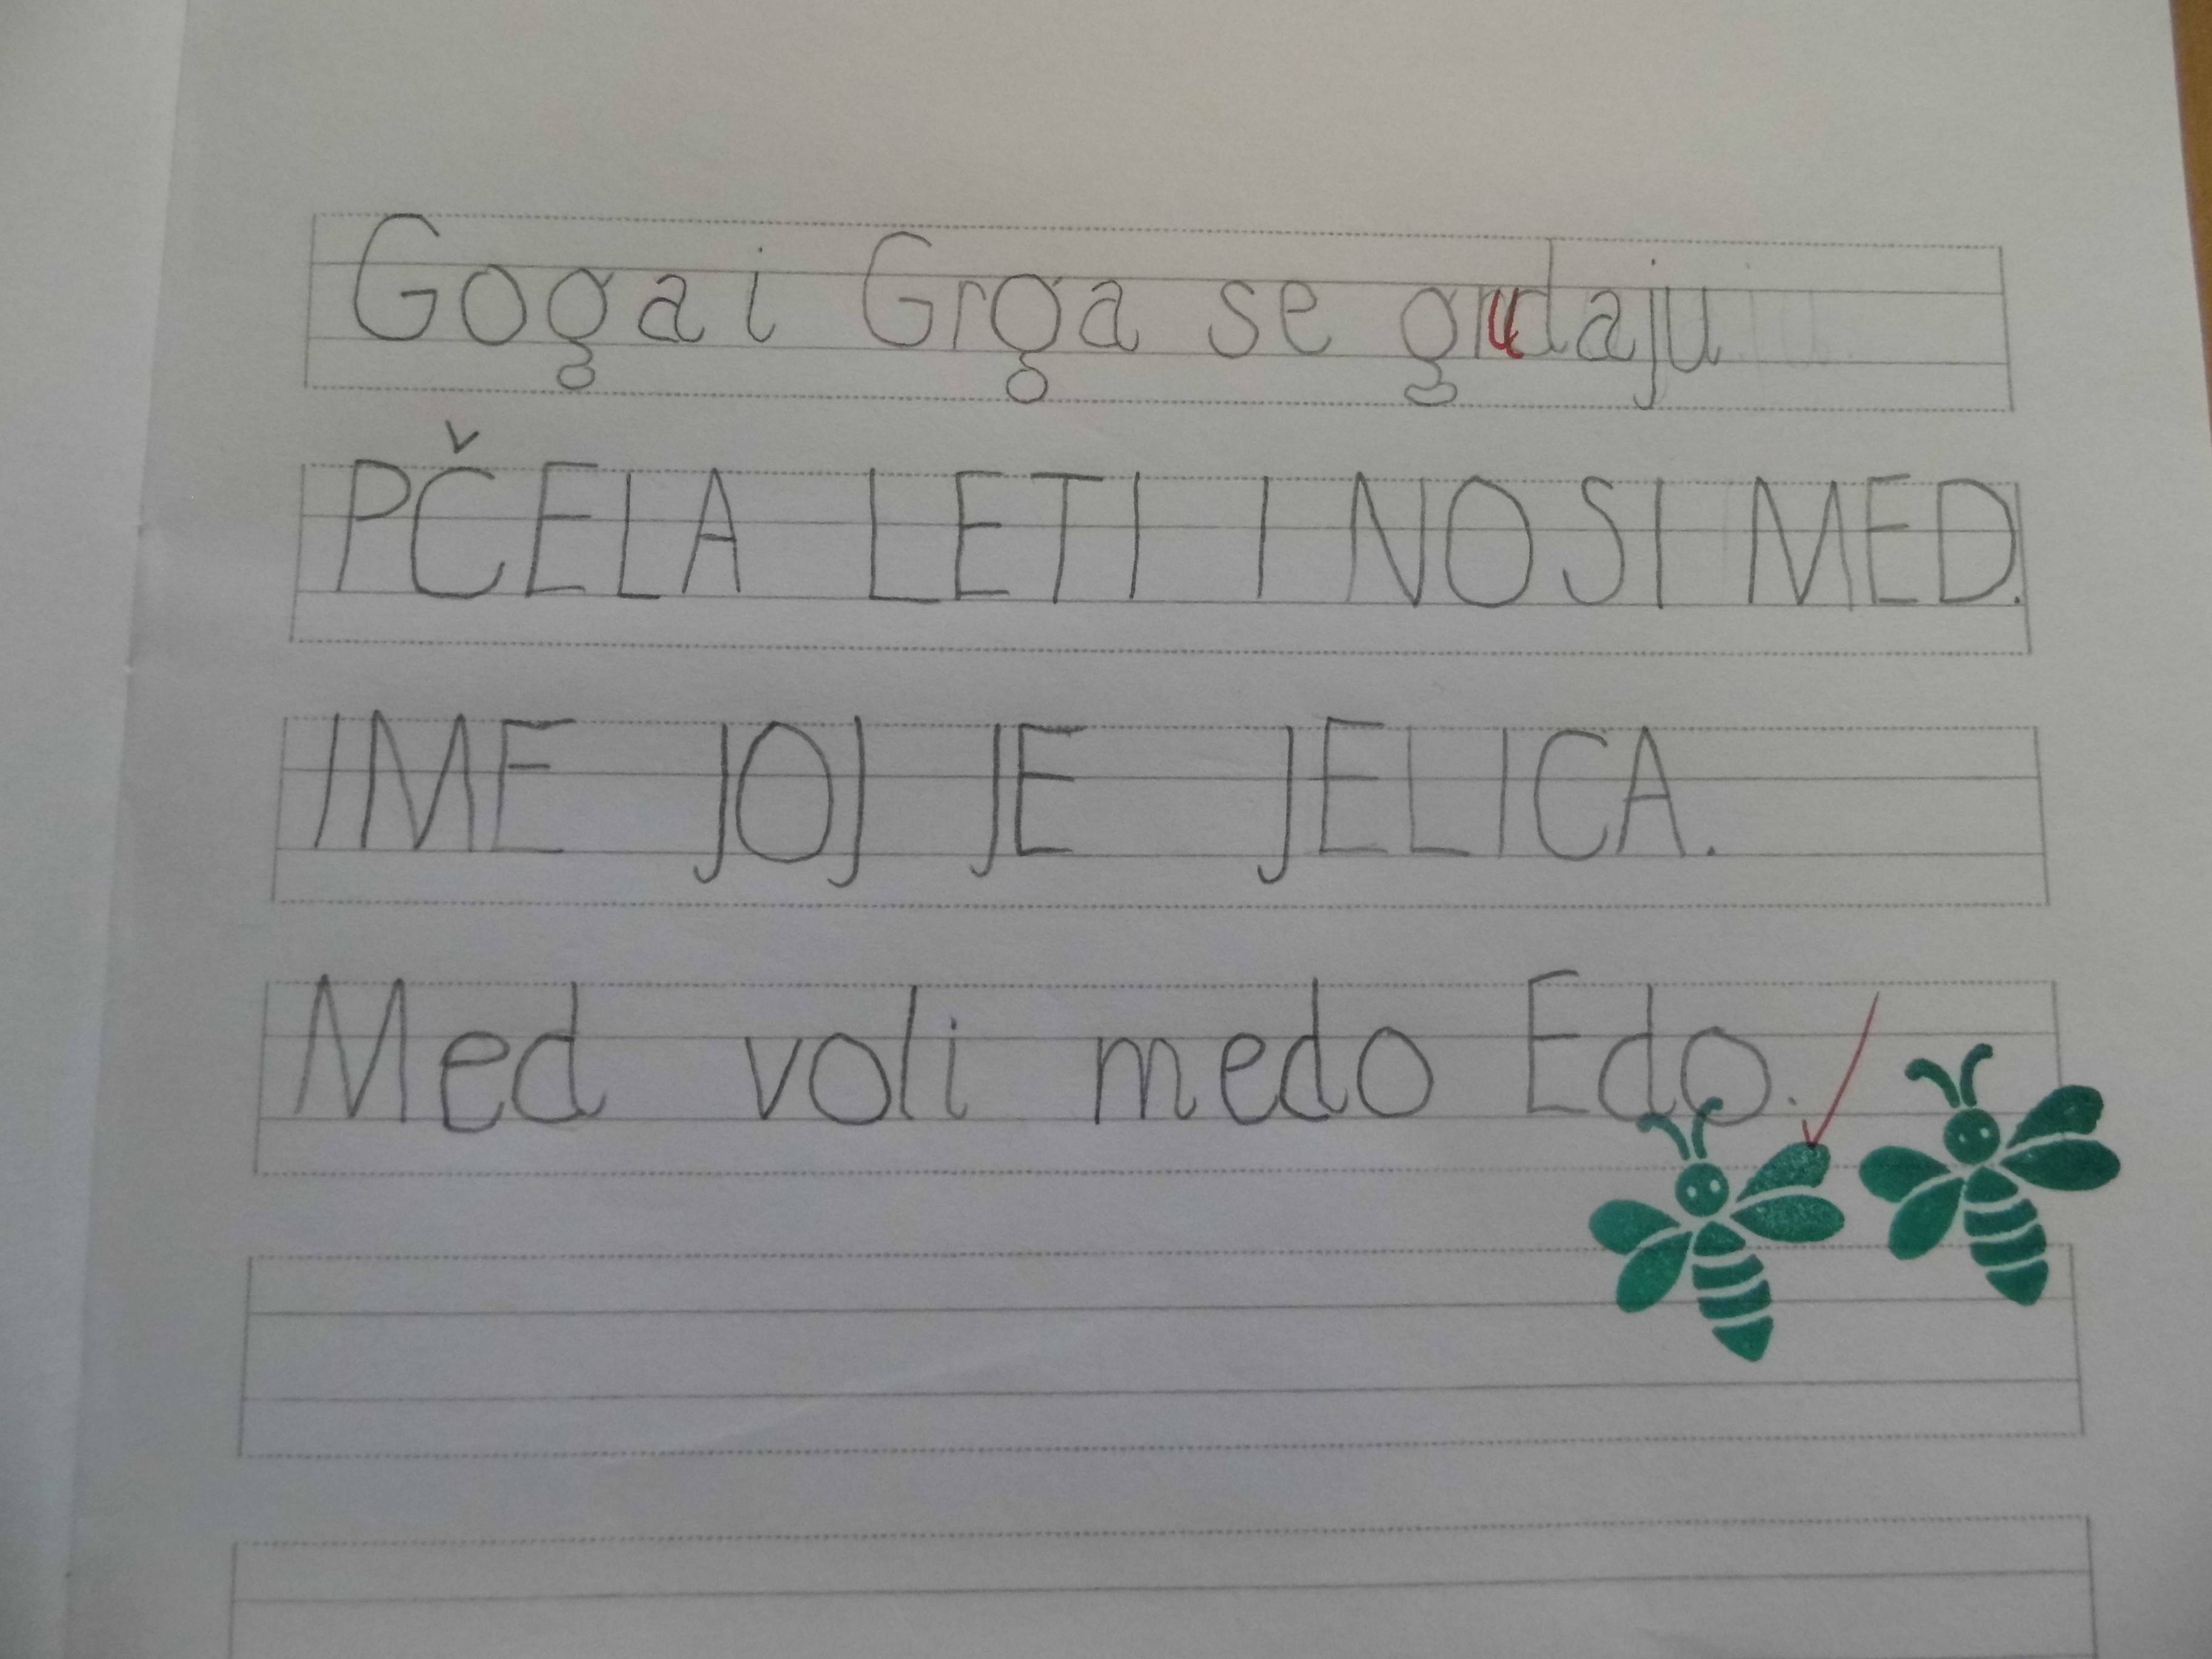 Goga i Grga se grudaju
PČELA LETI I NOSI MED.
IME JOJ JE JELICA.
Med voli medo Edo.